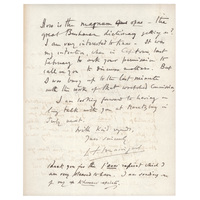 How is the magnum opus - the
great Burmese dictionary getting on?
I am very interested to know. It was
my intention, when in last
February to with your permission to
call on you to discuss matters. But
I was busy up to the last minute
with the work of that wretched Committee.
I am looking forward to having a
long talk with you at
July next.
With kind regards,
Yours sincerely
Thank you for the reprint which I
am very pleased to have. I am sending
of my